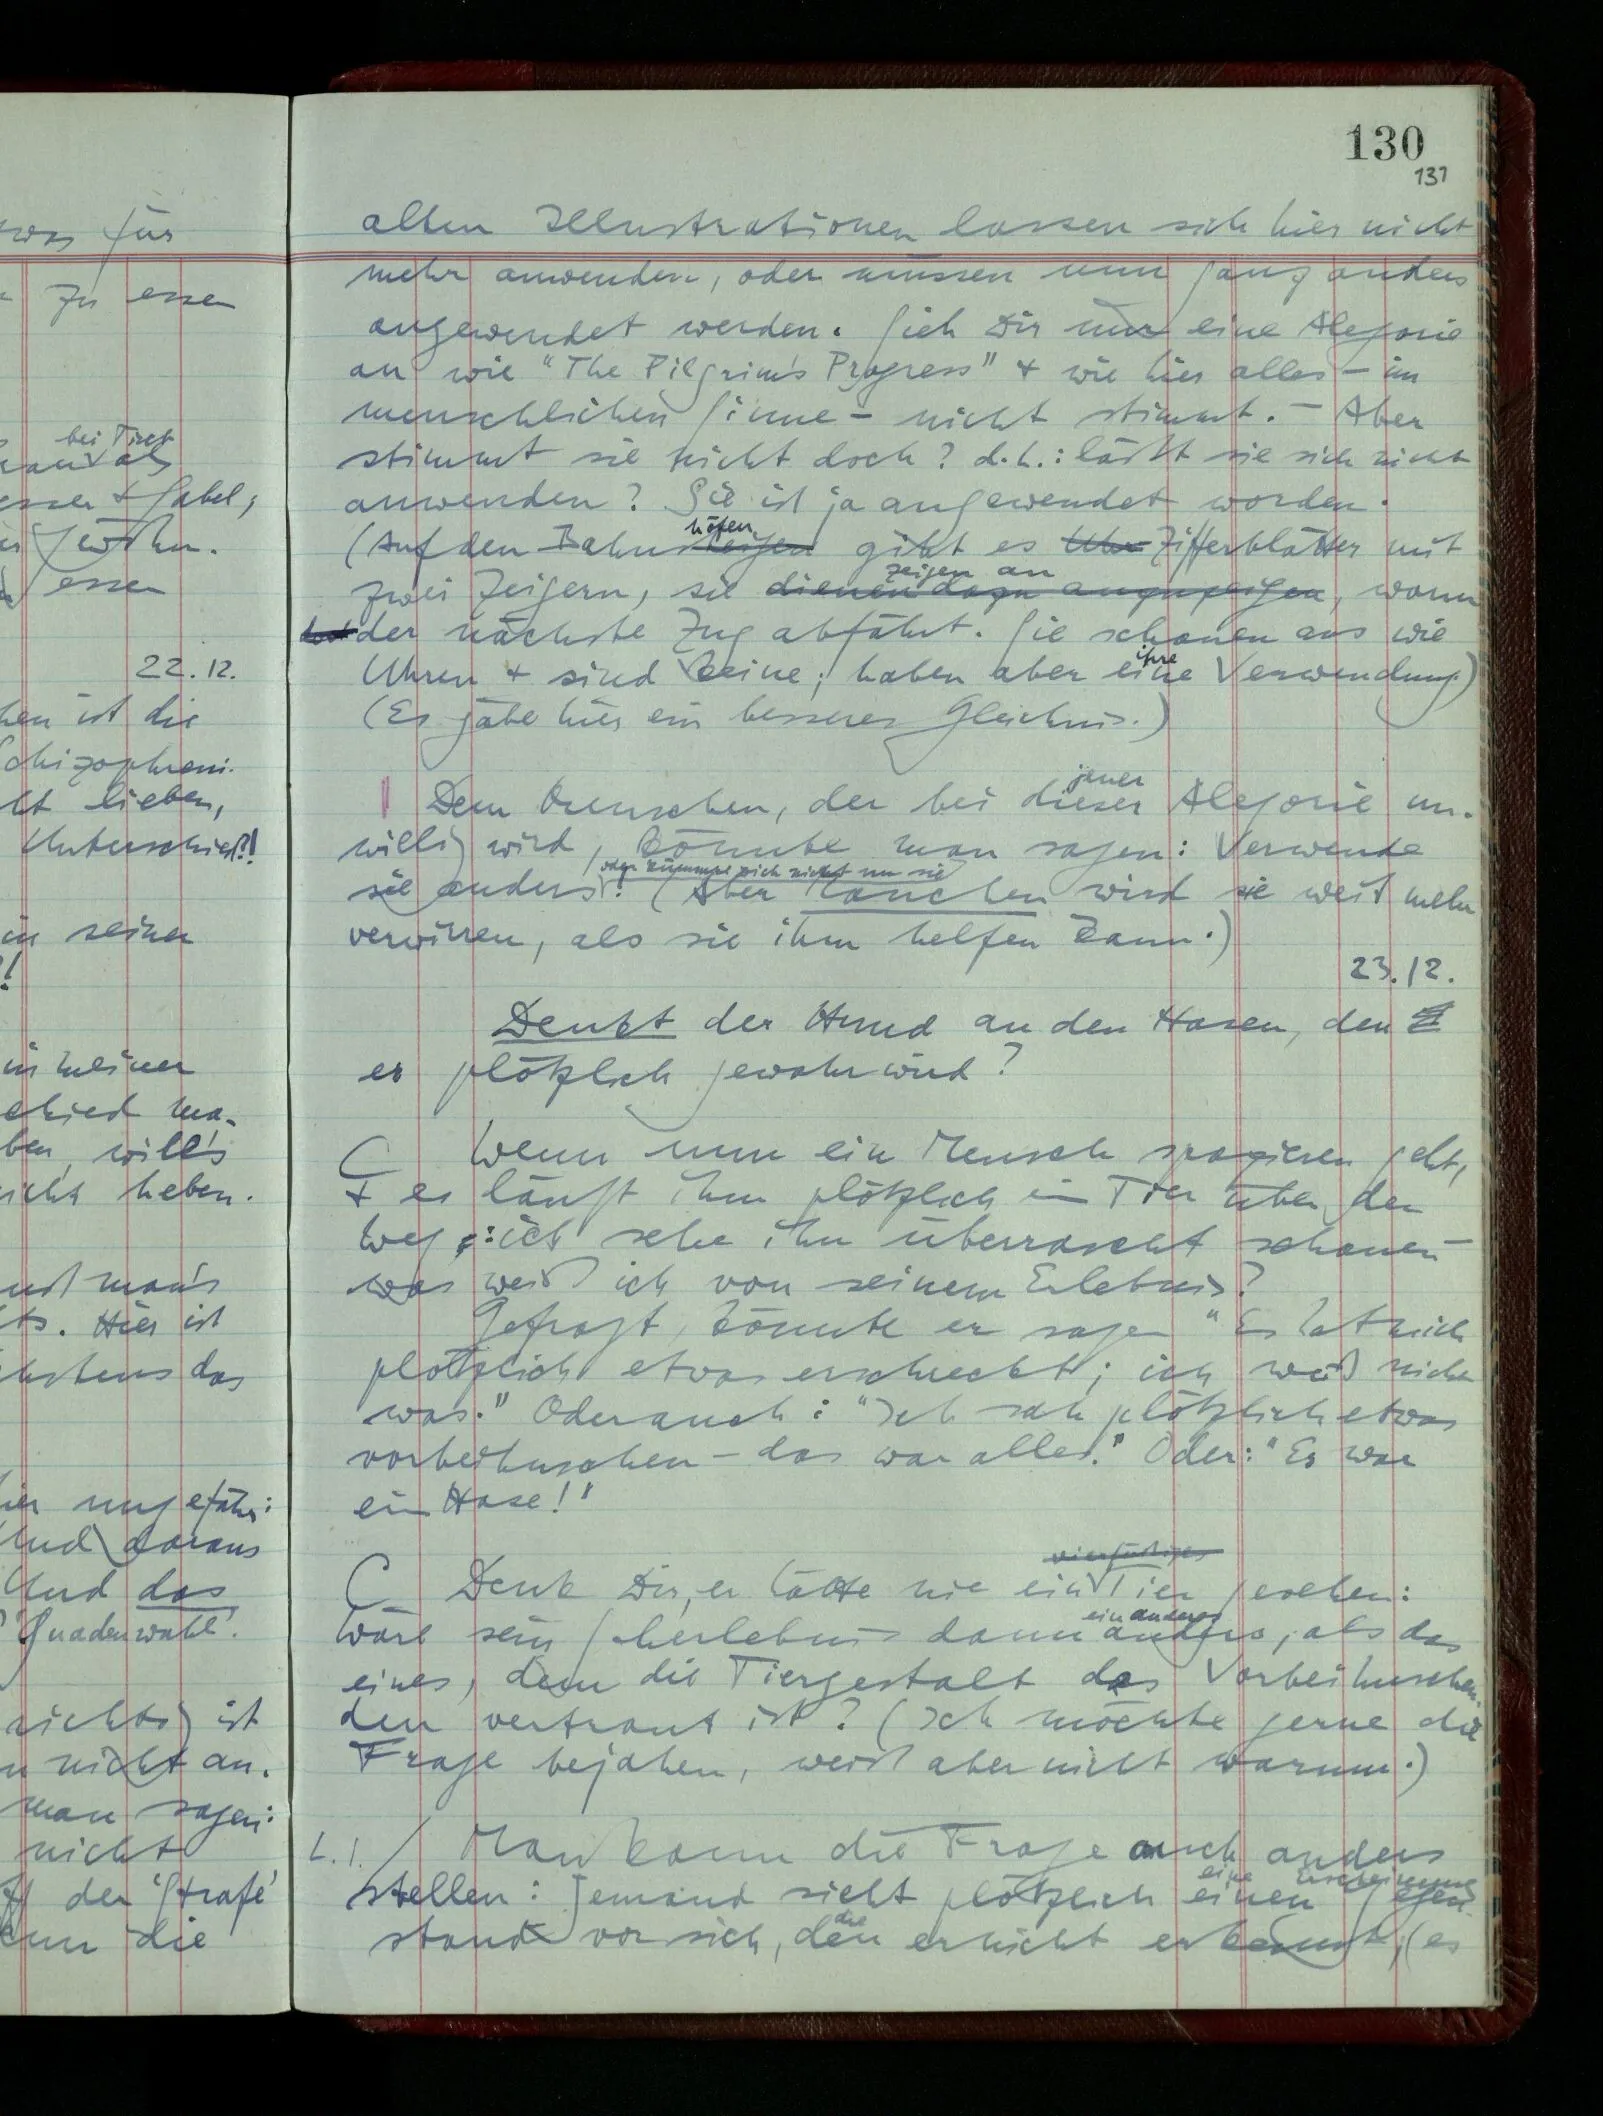 130
131
alten Illustrationen lassen sich hier nicht
mehr anwenden, oder müssen nun ganz anders
angewendet werden. Sieh Dir nur eine Alegorie
an wie "The Pilgrim's Progress" + wie hier alles – im
menschlichen Sinne – nicht stimmt. – Aber
stimmt sie nicht doch? d.h.: läßt sie sich nicht
anwenden? Sie ist ja angewendet worden.
höfen
(Auf den Bahnsteigen gibt es Uhr Zifferblätter mit
zeigen an
zwei Zeigern, sie dienen dazu anzuzeigen, wann
der nächste Zug abfährt. Sie schauen aus wie
ihre
Uhren + sind keine; haben aber eine Verwendung)
(Es gäbe hier ein besseres Gleichnis.)
jener
Dem Menschen, der bei dieser Alegorie un-
willig wird, könnte man sagen: Verwende
oder kümmre dich nicht um sie
sie anders! (Aber manchen wird sie weit mehr
verwirren, als sie ihm helfen kann.)
23.12.
Denkt der Hund an den Hasen, den
er plötzlich gewahr wird?
C Wenn nun ein Mensch spazieren geht,
+ es läuft ihm plötzlich ein Tier über den
Weg: ich sehe ihn überrascht schauen –
was weiß ich von seinem Erlebnis?
Gefragt, könnte er sagen "Es hat mich
plötzlich etwas erschreckt; ich weiß nicht
was." Oder auch: "Ich sah plötzlich etwas
vorbeihuschen – das war alles." Oder: "Es war
ein Hase!"
vierfüßiges
C Denk Dir, er hätte nie ein Tier gesehen:
ein anderes
wäre sein Seherlebnis dann anders, als das
eines, dem die Tiergestalt des Vorbeihuschen-
den vertraut ist? (Ich möchte gerne die
Frage bejahen, weiß aber nicht warum.)
L.1. / Man kann die Frage auch anders
eine Erscheinung
stellen: Jemand sieht plötzlich einen Gegen-
die
stand vor sich, den er nicht erkennt, (es
was für
zu essen
bei Tisch
Gabel;
essen
22.12.
ist die
Schizophreni-
lieben,
Unterschied?!
in seiner
in meiner
ben, will's
nicht heben.
man's
Hier ist
das
ungefähr:
Und daraus
Und das
'Gnadenwahl'.
nichts) ist
nicht an.
man sagen:
nicht
der 'Strafe'
die